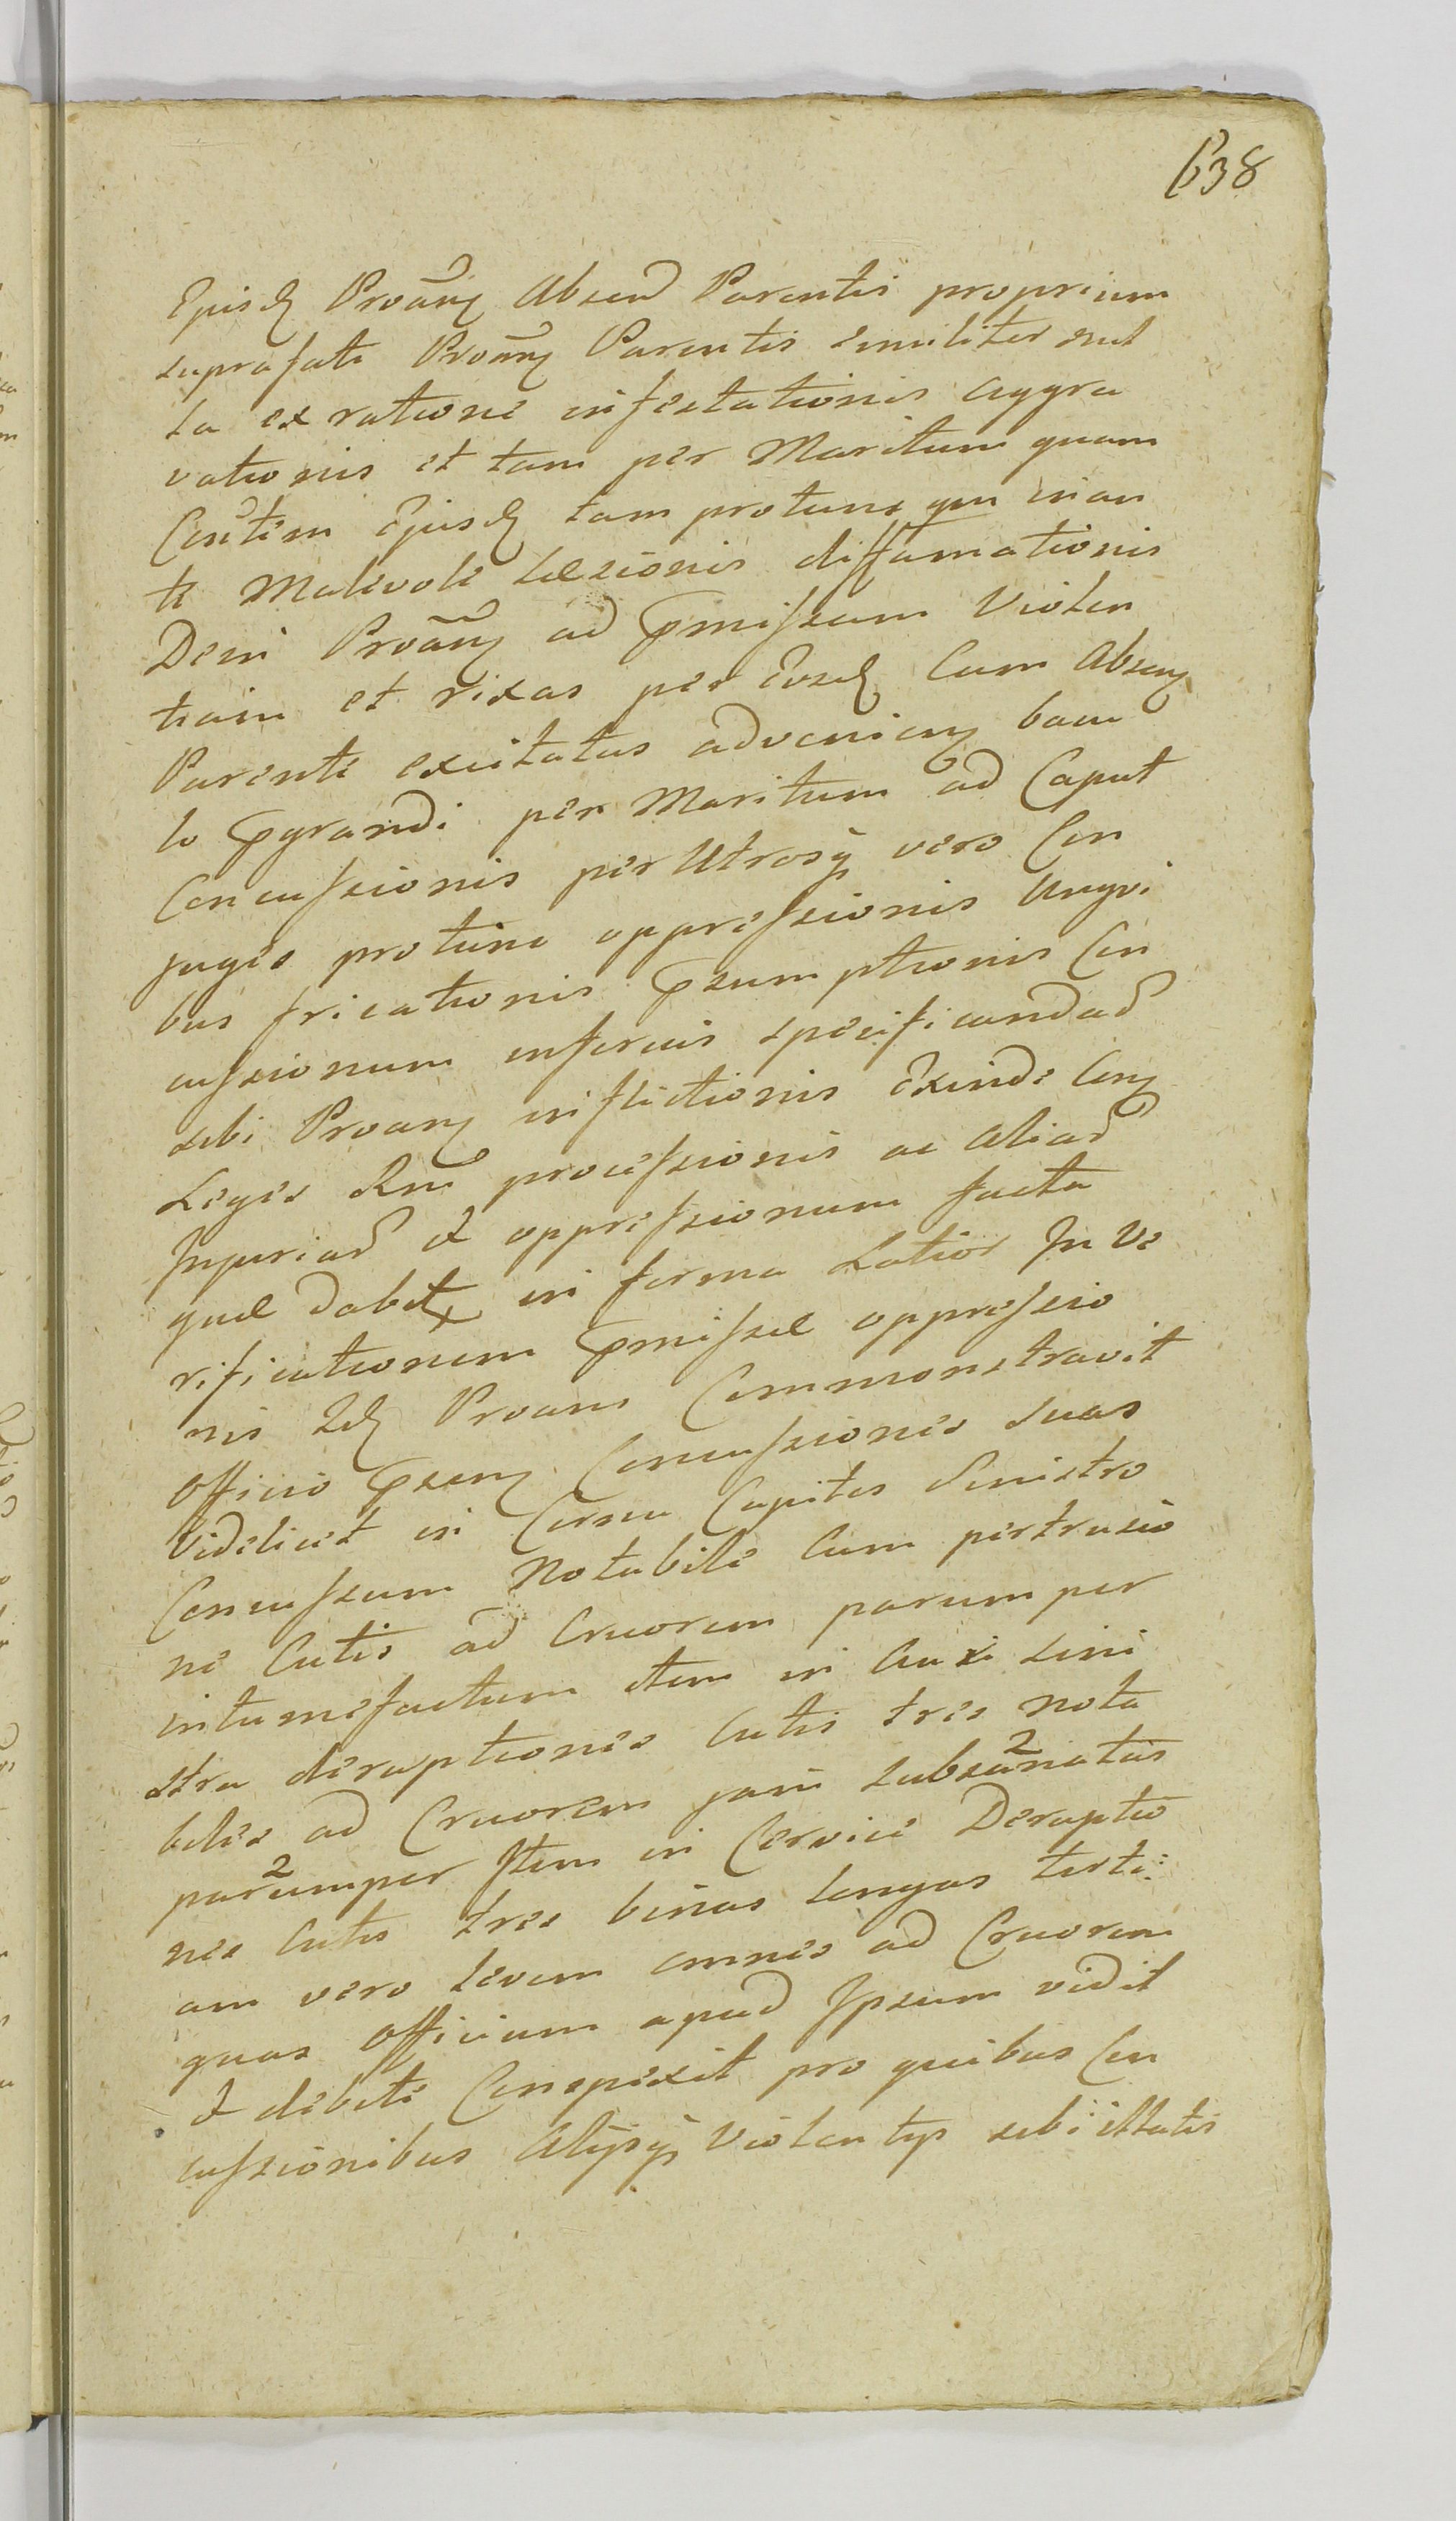 638
Ejusd Proãng Absend Parentis proprium
suprafati Proãng Parentis similiter mul
ta ex ratione infestationis aggra
vationis et tam per Maritum quam
Cońtem Ejusd tam protunc qm in an
te Malevole læsionis diffamationis
Dein Proãng ad pmissam Violen
tiam et rixas per Eosd Cum Abseng
Parente excitatas advenieng bacu
lo pgrandi per Maritum ad Caput
Concussionis per Utrosq vero Con
juges protunc oppressionis Ungvi
bus fricationis psumptionis Con
cussionum inferius specificandar
sibi Proang inflictionis Exinde Cong
Leges Rni processionis ac Aliar
Injuriar & oppressionum facta
quæ dabit in forma Latior In Ve
rificationem pmissæ oppressio
nis Id Proans Commonstravit
Officio pseng Concussiones suas
Videlicet in Cornu Capitis Sinistro
Concussum Notabile Cum pertrusio
ne Cutis ad Cruorem parumper
intumefactum item in Auri sini
stra deruptiones Cutis tres nota
biles ad Cruorem jam subsanatas
parumper Item in Cervice Deruptio
nes Cutis tres binas longas terti:
am vero levem omnes ad Cruorem
quas Officium apud Ipsum vidit
& debite Conspexit pro quibus Con
cussionibus Alijsq Violentijs sibi illatis